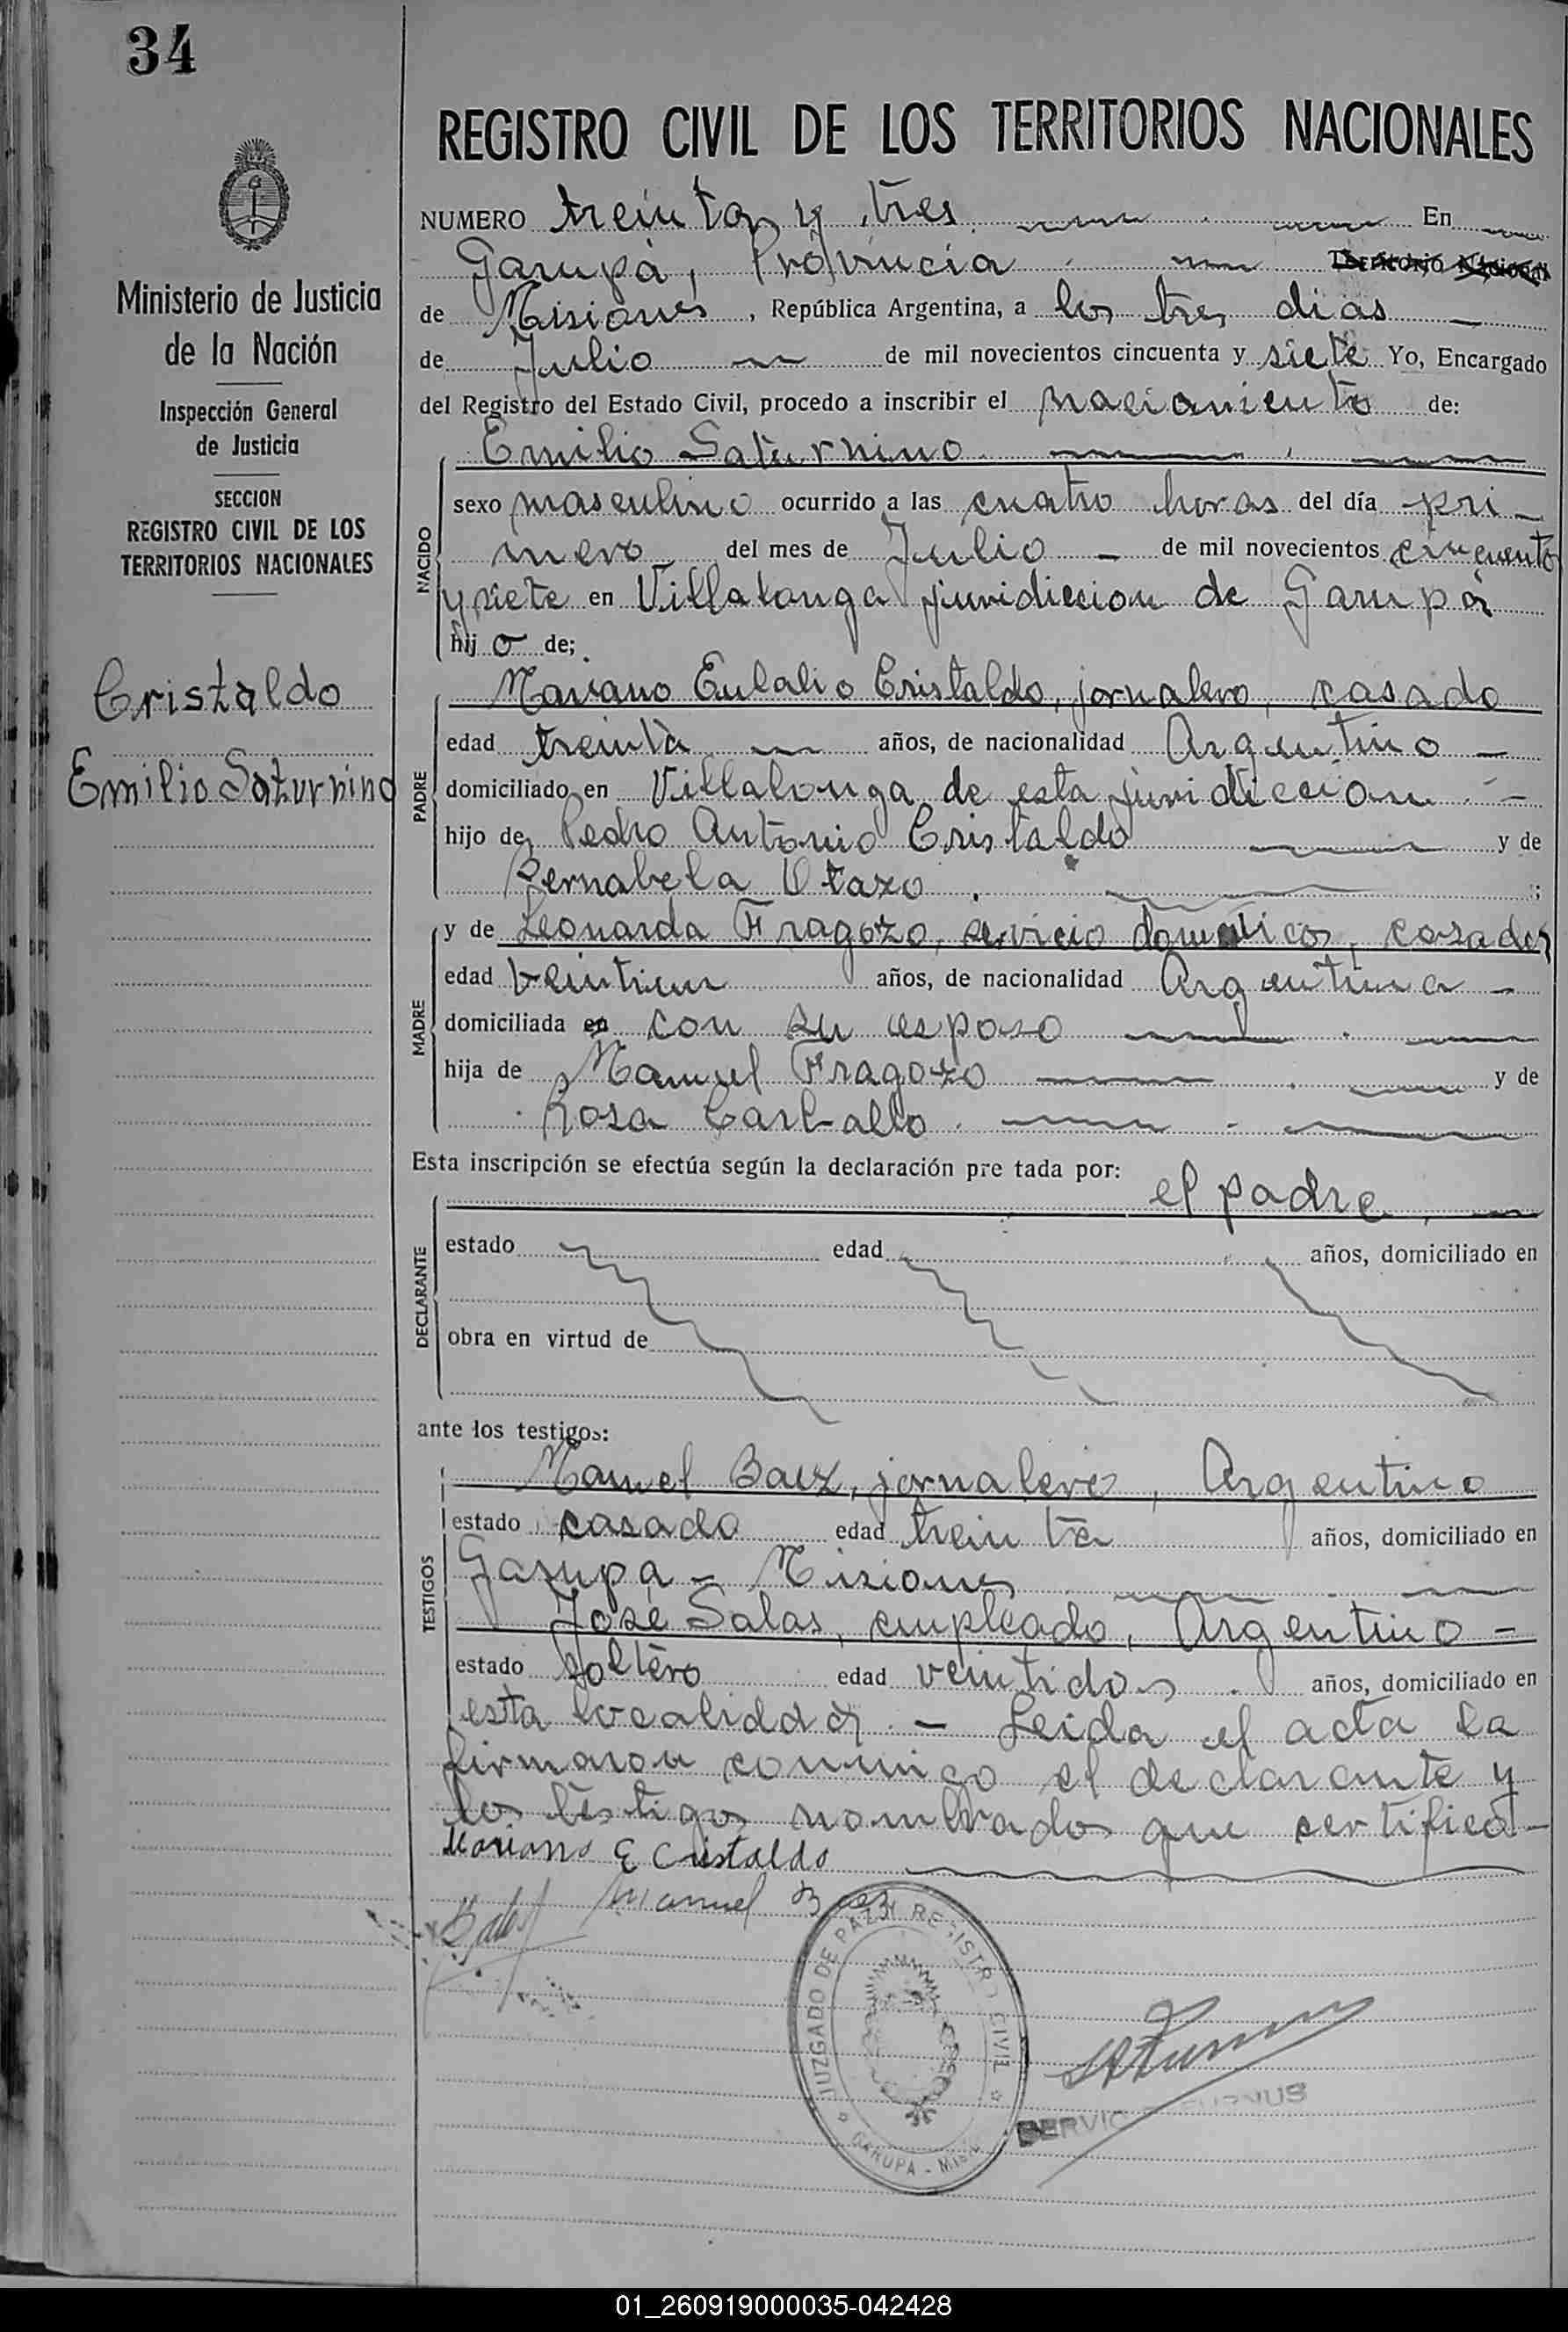 34
REGISTRO CIVIL DE LOS TERRITORIOS NACIONALES
Ministerio de Justicia
de la Nación
Inspección General
de Justicia
SECCION
REGISTRO CIVIL DE LOS
TERRITORIOS NACIONALES
Cristaldo
Emilio Saturnino
NUMERO treinta y tres En
Garupá, Provincia Territorio Nacional
de Misiones, República Argentina, a los tres dias
de Julio de mil novecientos cincuenta y siete Yo, Encargado
del Registro del Estado Civil, procedo a inscribir el nacimiento de:
Emilio Saturnino
NACIDO
sexo masculino ocurrido a las cuatro horas del día pri-
mero del mes de Julio de mil novecientos cincuenta
y siete en Villalonga juridiccion de Garupá
hijo de;
PADRE
Mariano Eulalio Cristaldo, jornalero, casado
edad treinta años, de nacionalidad Argentino
domiciliado en Villalonga de esta juridiccion
hijo de Pedro Antonio Cristaldo y de
Bernabela Otazo
MADRE
y de Leonarda Fragozo, servicio domestico, casada
edad años, de nacionalidad Argentina
domiciliada en con su esposo
hija de Manuel Fragozo y de
Rosa Carballo
Esta inscripción se efectúa según la declaración pre tada por:
el padre
DECLARANTE
estado edad años, domiciliado en
obra en virtud de
ante los testigos:
TESTIGOS
Manuel Baez, jornalero, Argentino
estado casado edad treinta años, domiciliado en
Garupá - Misiones
José Salas, empleado, Argentino -
estado soltero edad veintidos años, domiciliado en
esta localidad. - Leida el acta la
firmaron conmigo el declarante y
los testigos nombrados que certifico-
Mariano E Cristaldo
Manuel Baez
JUZGADO DE PAZ Y REGISTRO CIVIL
GARUPA - MIS
01_260919000035-042428